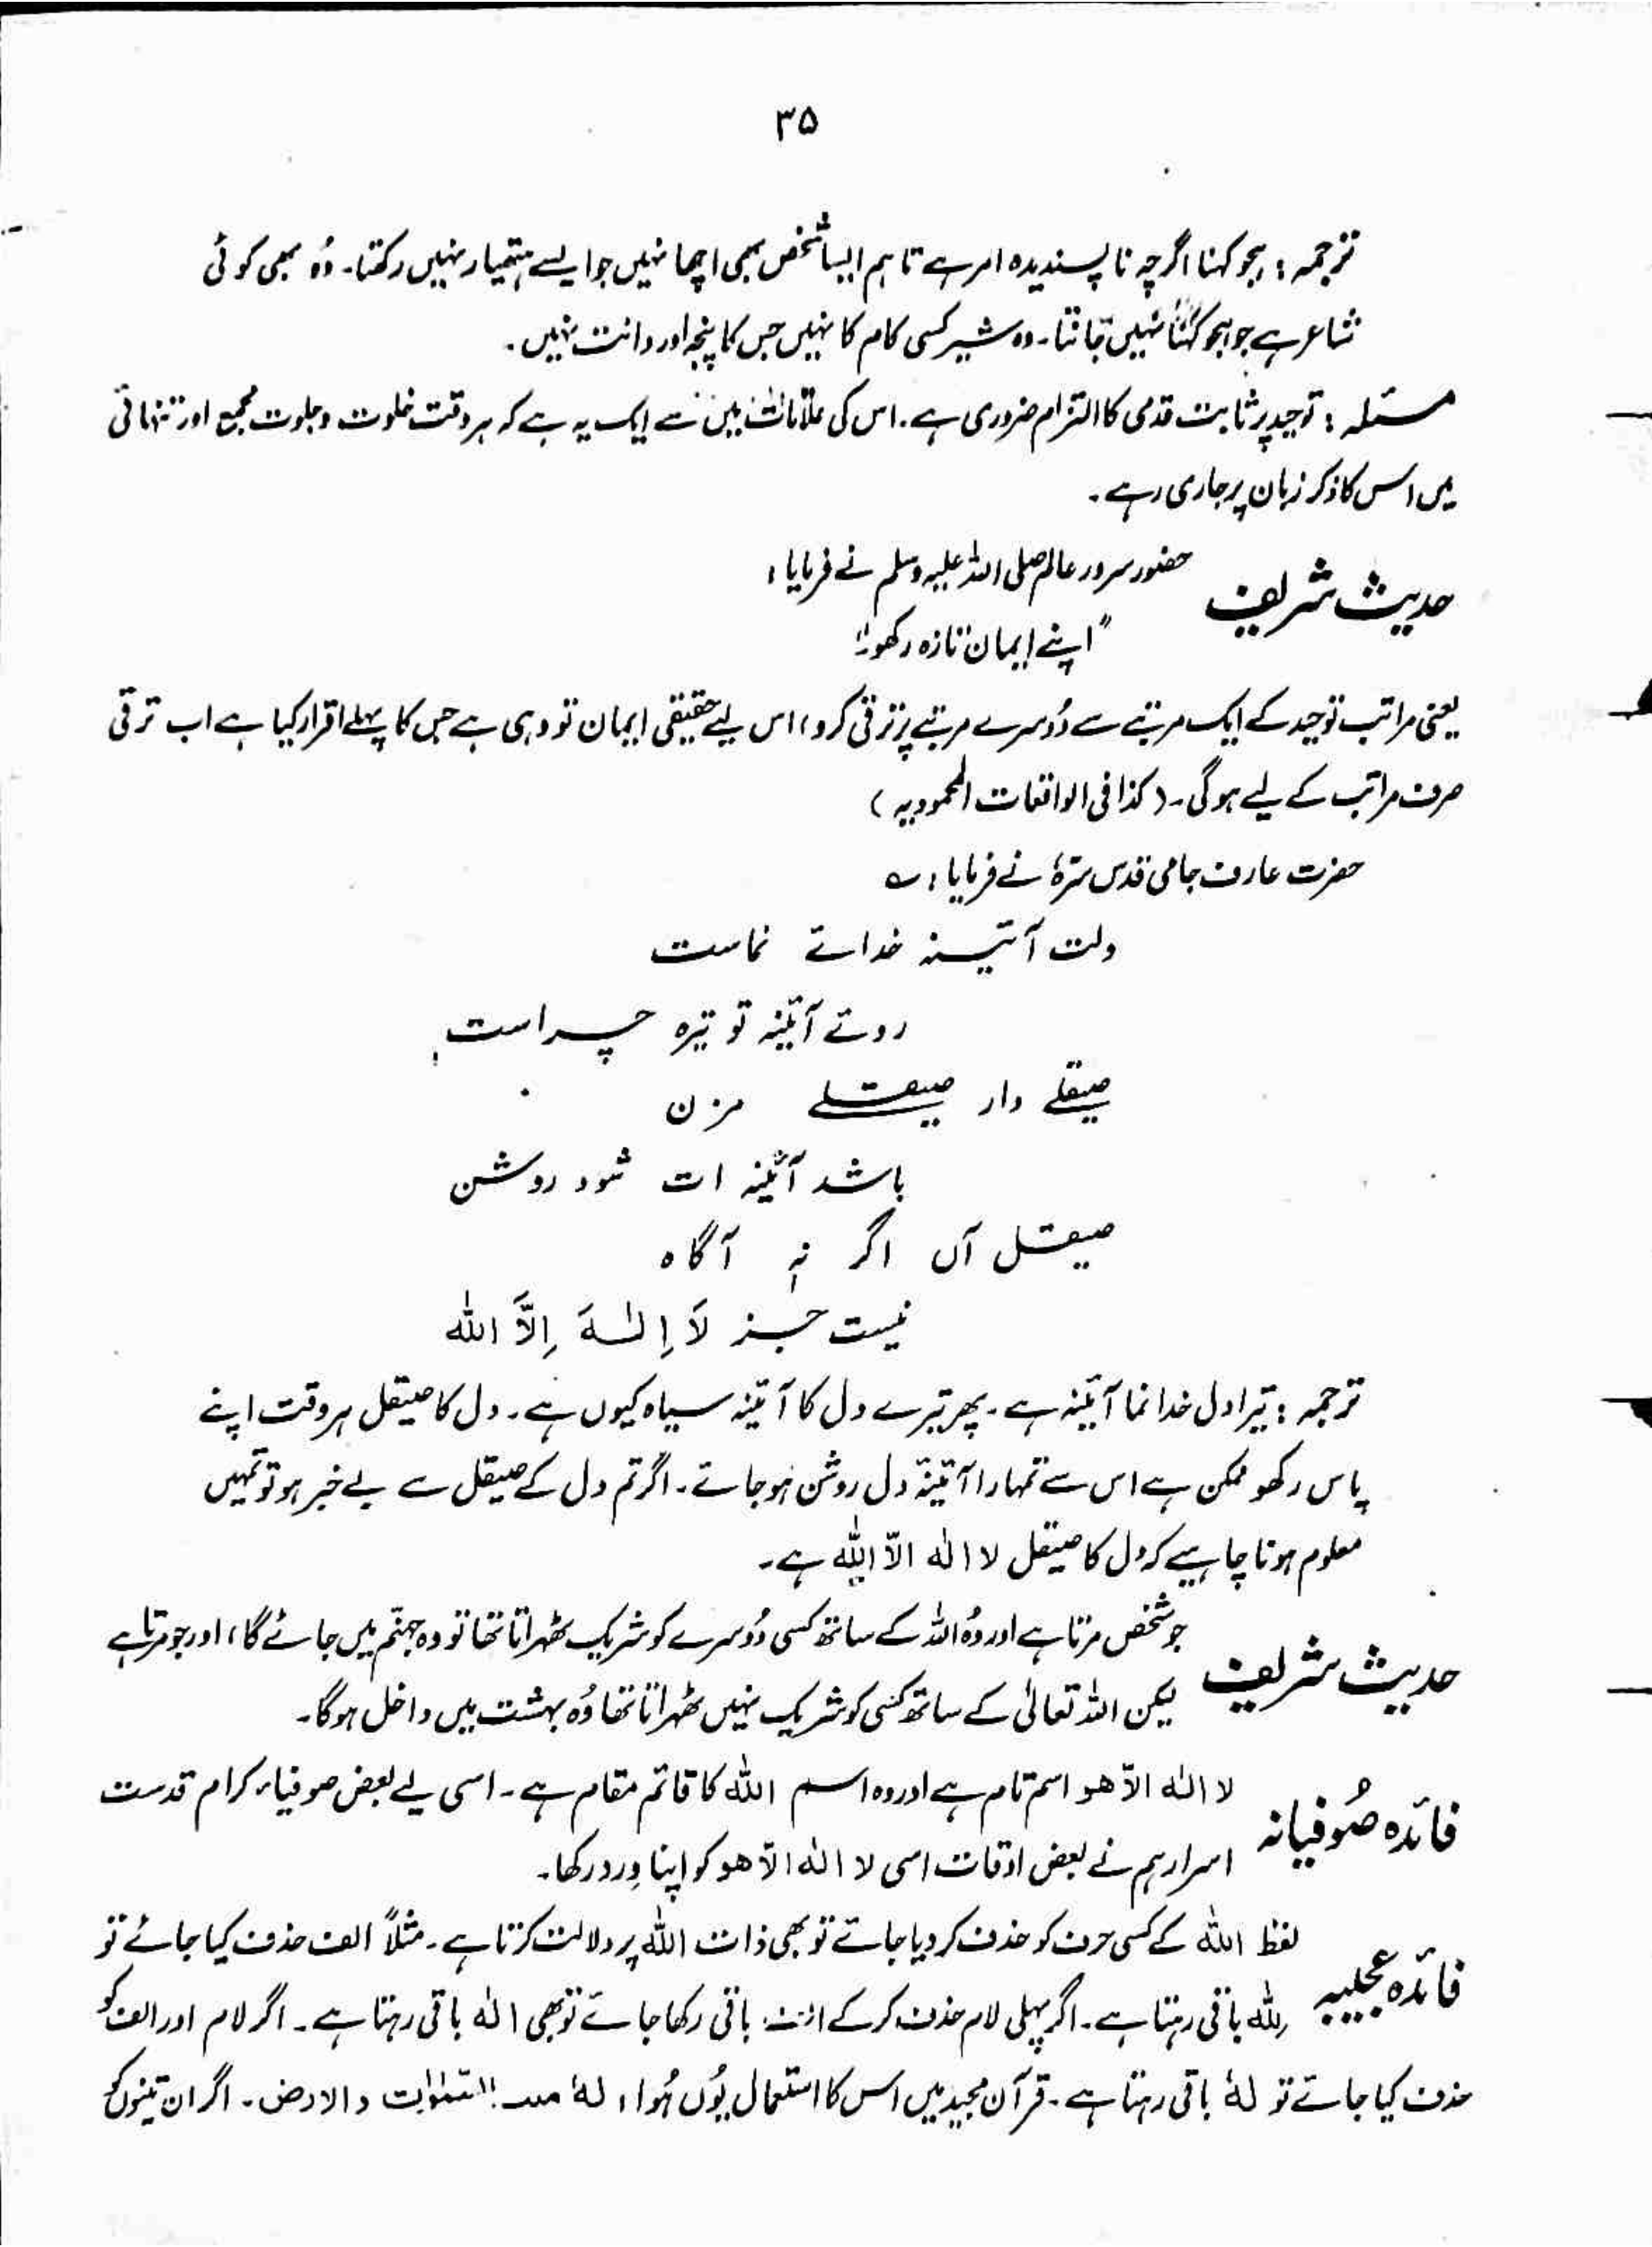 ۳۵
ترجمہ : ہجو کہنا اگرچہ ناپسندیدہ امر ہے تاہم ایسا شخص بھی اچھا نہیں جو ایسے ہتھیار نہیں رکھتا۔ وُہ بھی کوئی
شاعر ہے جو ہجو کہنا نہیں جانتا۔ وہ شیر کسی کام کا نہیں جس کا پنجہ اور دانت نہیں۔
مسئلہ : توحید پر ثابت قدمی کا التزام ضروری ہے۔ اس کی علامات میں سے ایک یہ ہے کہ ہر وقت خلوت و جلوت مجمع اور تنہائی
میں اس کا ذکر زبان پر جاری رہے۔
حدیث شریف حضور سرور عالم صلی اللہ علیہ وسلم نے فرمایا :
"اپنے ایمان تازہ رکھو۔"
یعنی مراتب توحید کے ایک مرتبے سے دُوسرے مرتبے پر ترقی کرو، اس لیے حقیقی ایمان تو وہی ہے جس کا پہلے اقرار کیا ہے اب ترقی
صرف مراتب کے لیے ہوگی۔ (کذا فی الواقعات المحمودیہ)
حضرت عارف جامی قدس سرہٗ نے فرمایا : ؎
دلت آئینہ خدائے نماست
روئے آئینہ تو تیرہ چراست
صیقلے دار صیقلے مزن
باشد آئینہ ات شود روشن
صیقل آں اگر نہٖ آگاہ
نیست جز لَا اِلٰہَ اِلَّا اللہ
ترجمہ : تیرا دل خدا نما آئینہ ہے۔ پھر تیرے دل کا آئینہ سیاہ کیوں ہے۔ دل کا صیقل ہر وقت اپنے
پاس رکھو ممکن ہے اس سے تمہارا آئینۂ دل روشن ہو جائے۔ اگر تم دل کے صیقل سے بے خبر ہو تو تمہیں
معلوم ہونا چاہیے کہ دل کا صیقل لا الٰہ الّا اللہ ہے۔
حدیث شریف جو شخص مرتا ہے اور وُہ اللہ کے ساتھ کسی دُوسرے کو شریک ٹھہراتا تھا تو وہ جہنّم میں جائے گا، اور جو مرتا ہے
لیکن اللہ تعالیٰ کے ساتھ کسی کو شریک نہیں ٹھہراتا تھا وُہ بہشت میں داخل ہوگا۔
فائدہ صُوفیانہ لا الٰہ الّا ھو اسم تام ہے اور وہ اسم اللہ کا قائم مقام ہے۔ اسی لیے بعض صوفیاء کرام قدست
اسرارہم نے بعض اوقات اسی لا الٰہ الّا ھو کو اپنا وِرد رکھا۔
فائدہ عجیبہ لفظ اللہ کے کسی حرف کو حذف کر دیا جائے تو بھی ذات اللہ پر دلالت کرتا ہے۔ مثلاً الف حذف کیا جائے تو
للہ باقی رہتا ہے۔ اگر پہلی لام حذف کر کے الف باقی رکھا جائے تو بھی الٰہ باقی رہتا ہے۔ اگر لام اور الف کو
حذف کیا جائے تو لہٗ باقی رہتا ہے۔ قرآن مجید میں اس کا استعمال یُوں ہُوا : لہٗ السمٰوٰت والارض۔ اگر ان تینوں کو